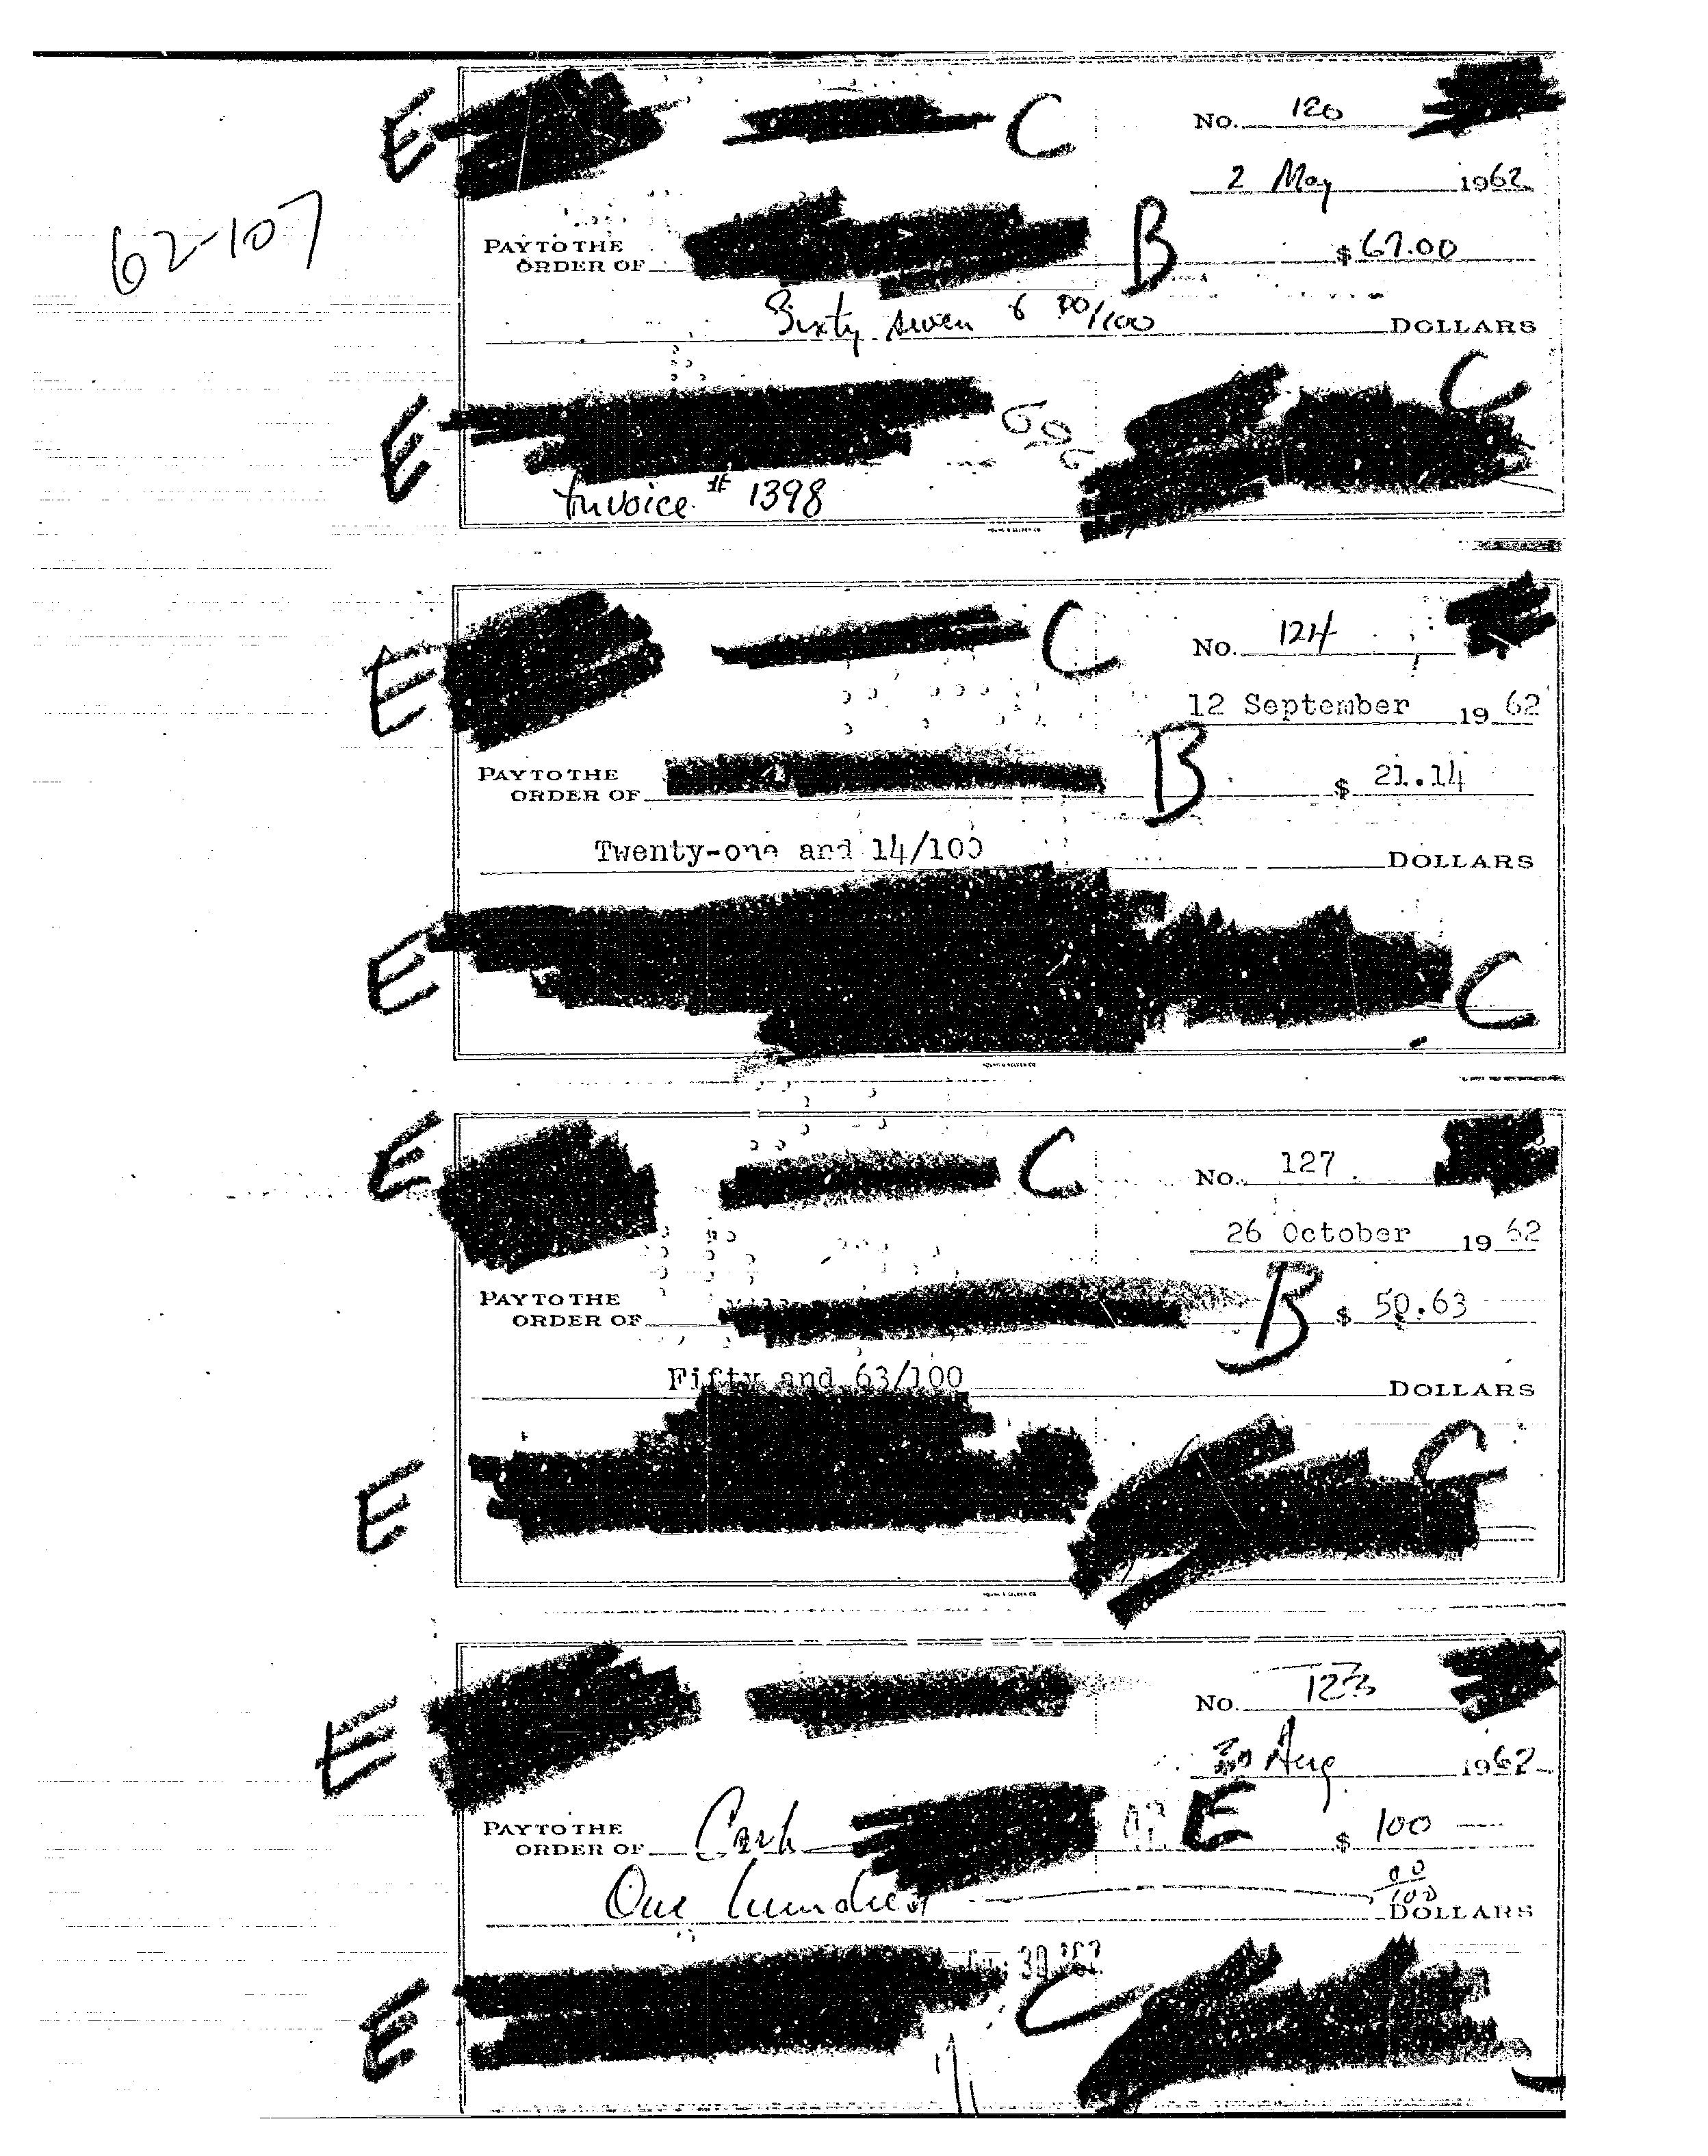 E C No. 120
2 May 1962
62-107
PAY TO THE
ORDER OF B $ 67.00
Sixty seven & 00/100 DOLLARS
E C
696
Invoice # 1398
E C No. 124
12 September 19 62
PAY TO THE
ORDER OF B $ 21.14
Twenty-one and 14/100 DOLLARS
E C
E C No. 127
26 October 19 62
PAY TO THE
ORDER OF B $ 50.63
Fifty and 63/100 DOLLARS
E C
E No. 123
30 Aug 1962
PAY TO THE
ORDER OF Cash E $ 100
One hundred 00/100
DOLLARS
30
E C